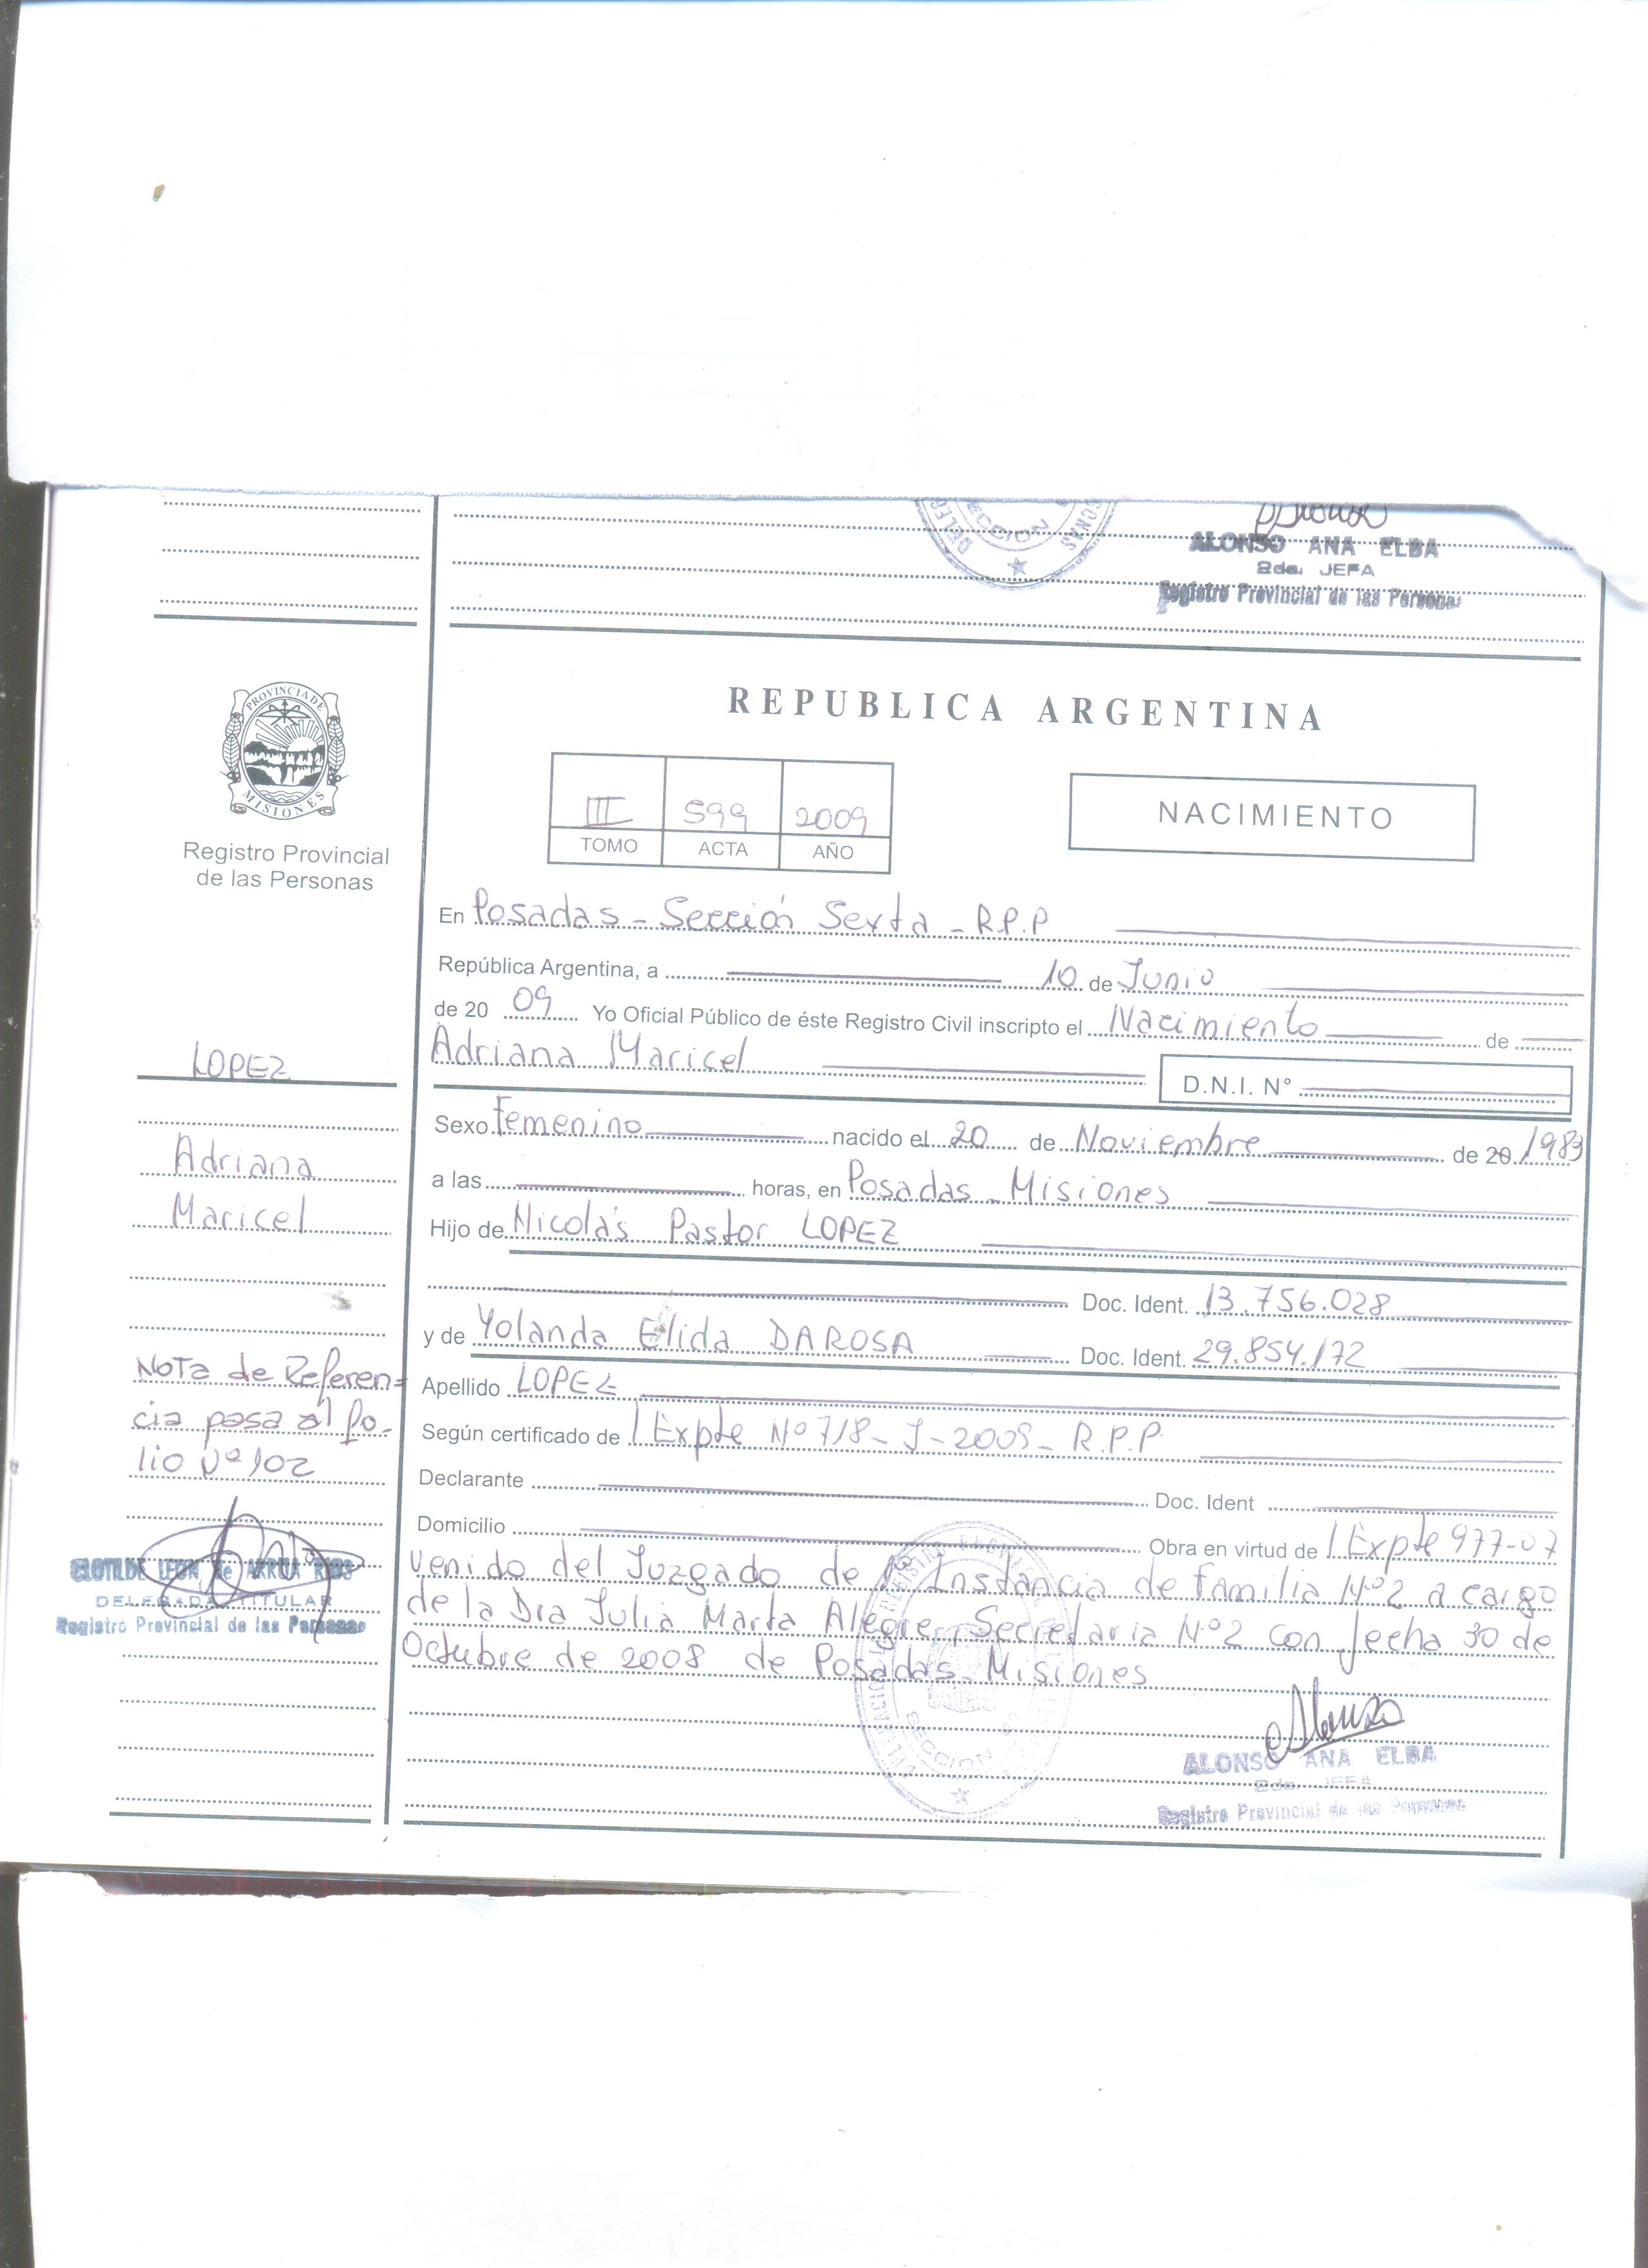 ALONSO ANA ELBA
2da. JEFA
Registro Provincial de las Personas
PROVINCIA DE
MISIONES
Registro Provincial
de las Personas
LOPEZ
Adriana
Maricel
Nota de Referen=
cia pasa al fo-
lio Nº 102
CLOTILDE LEON de ARRUA RIOS
DELEGADA TITULAR
Registro Provincial de las Personas
REPUBLICA ARGENTINA
III 599 2009
TOMO ACTA AÑO
NACIMIENTO
En Posadas - Sección Sexta - R.P.P
República Argentina, a 10 de Junio
de 20 09 Yo Oficial Público de éste Registro Civil inscripto el Nacimiento de
Adriana Maricel D.N.I. N°
Sexo Femenino nacido el 20 de Noviembre de 20 1983
a las horas, en Posadas - Misiones
Hijo de Nicolás Pastor LOPEZ
Doc. Ident. 13.756.028
y de Yolanda Elida DAROSA Doc. Ident. 29.854.172
Apellido LOPEZ
Según certificado de Expte Nº 718 - J - 2009 - R.P.P.
Declarante Doc. Ident
Domicilio Obra en virtud de Expte 977-07
venido del Juzgado de 1ª Instancia de Familia Nº 2 a cargo
de la Dra Julia Marta Alegre, Secretaria Nº 2 con fecha 30 de
Octubre de 2008 de Posadas - Misiones
SECCION
ALONSO ANA ELBA
2da. JEFA
Registro Provincial de las Personas